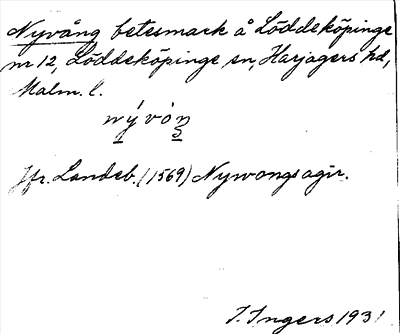 Nyvång betesmark å Löddeköpinge
nr 12, Löddeköpinge sn, Harjagers hd,
Malm. l.
nývòŋ
Jfr. Landeb. (1569) Nywongs agir.
I. Ingers 1931